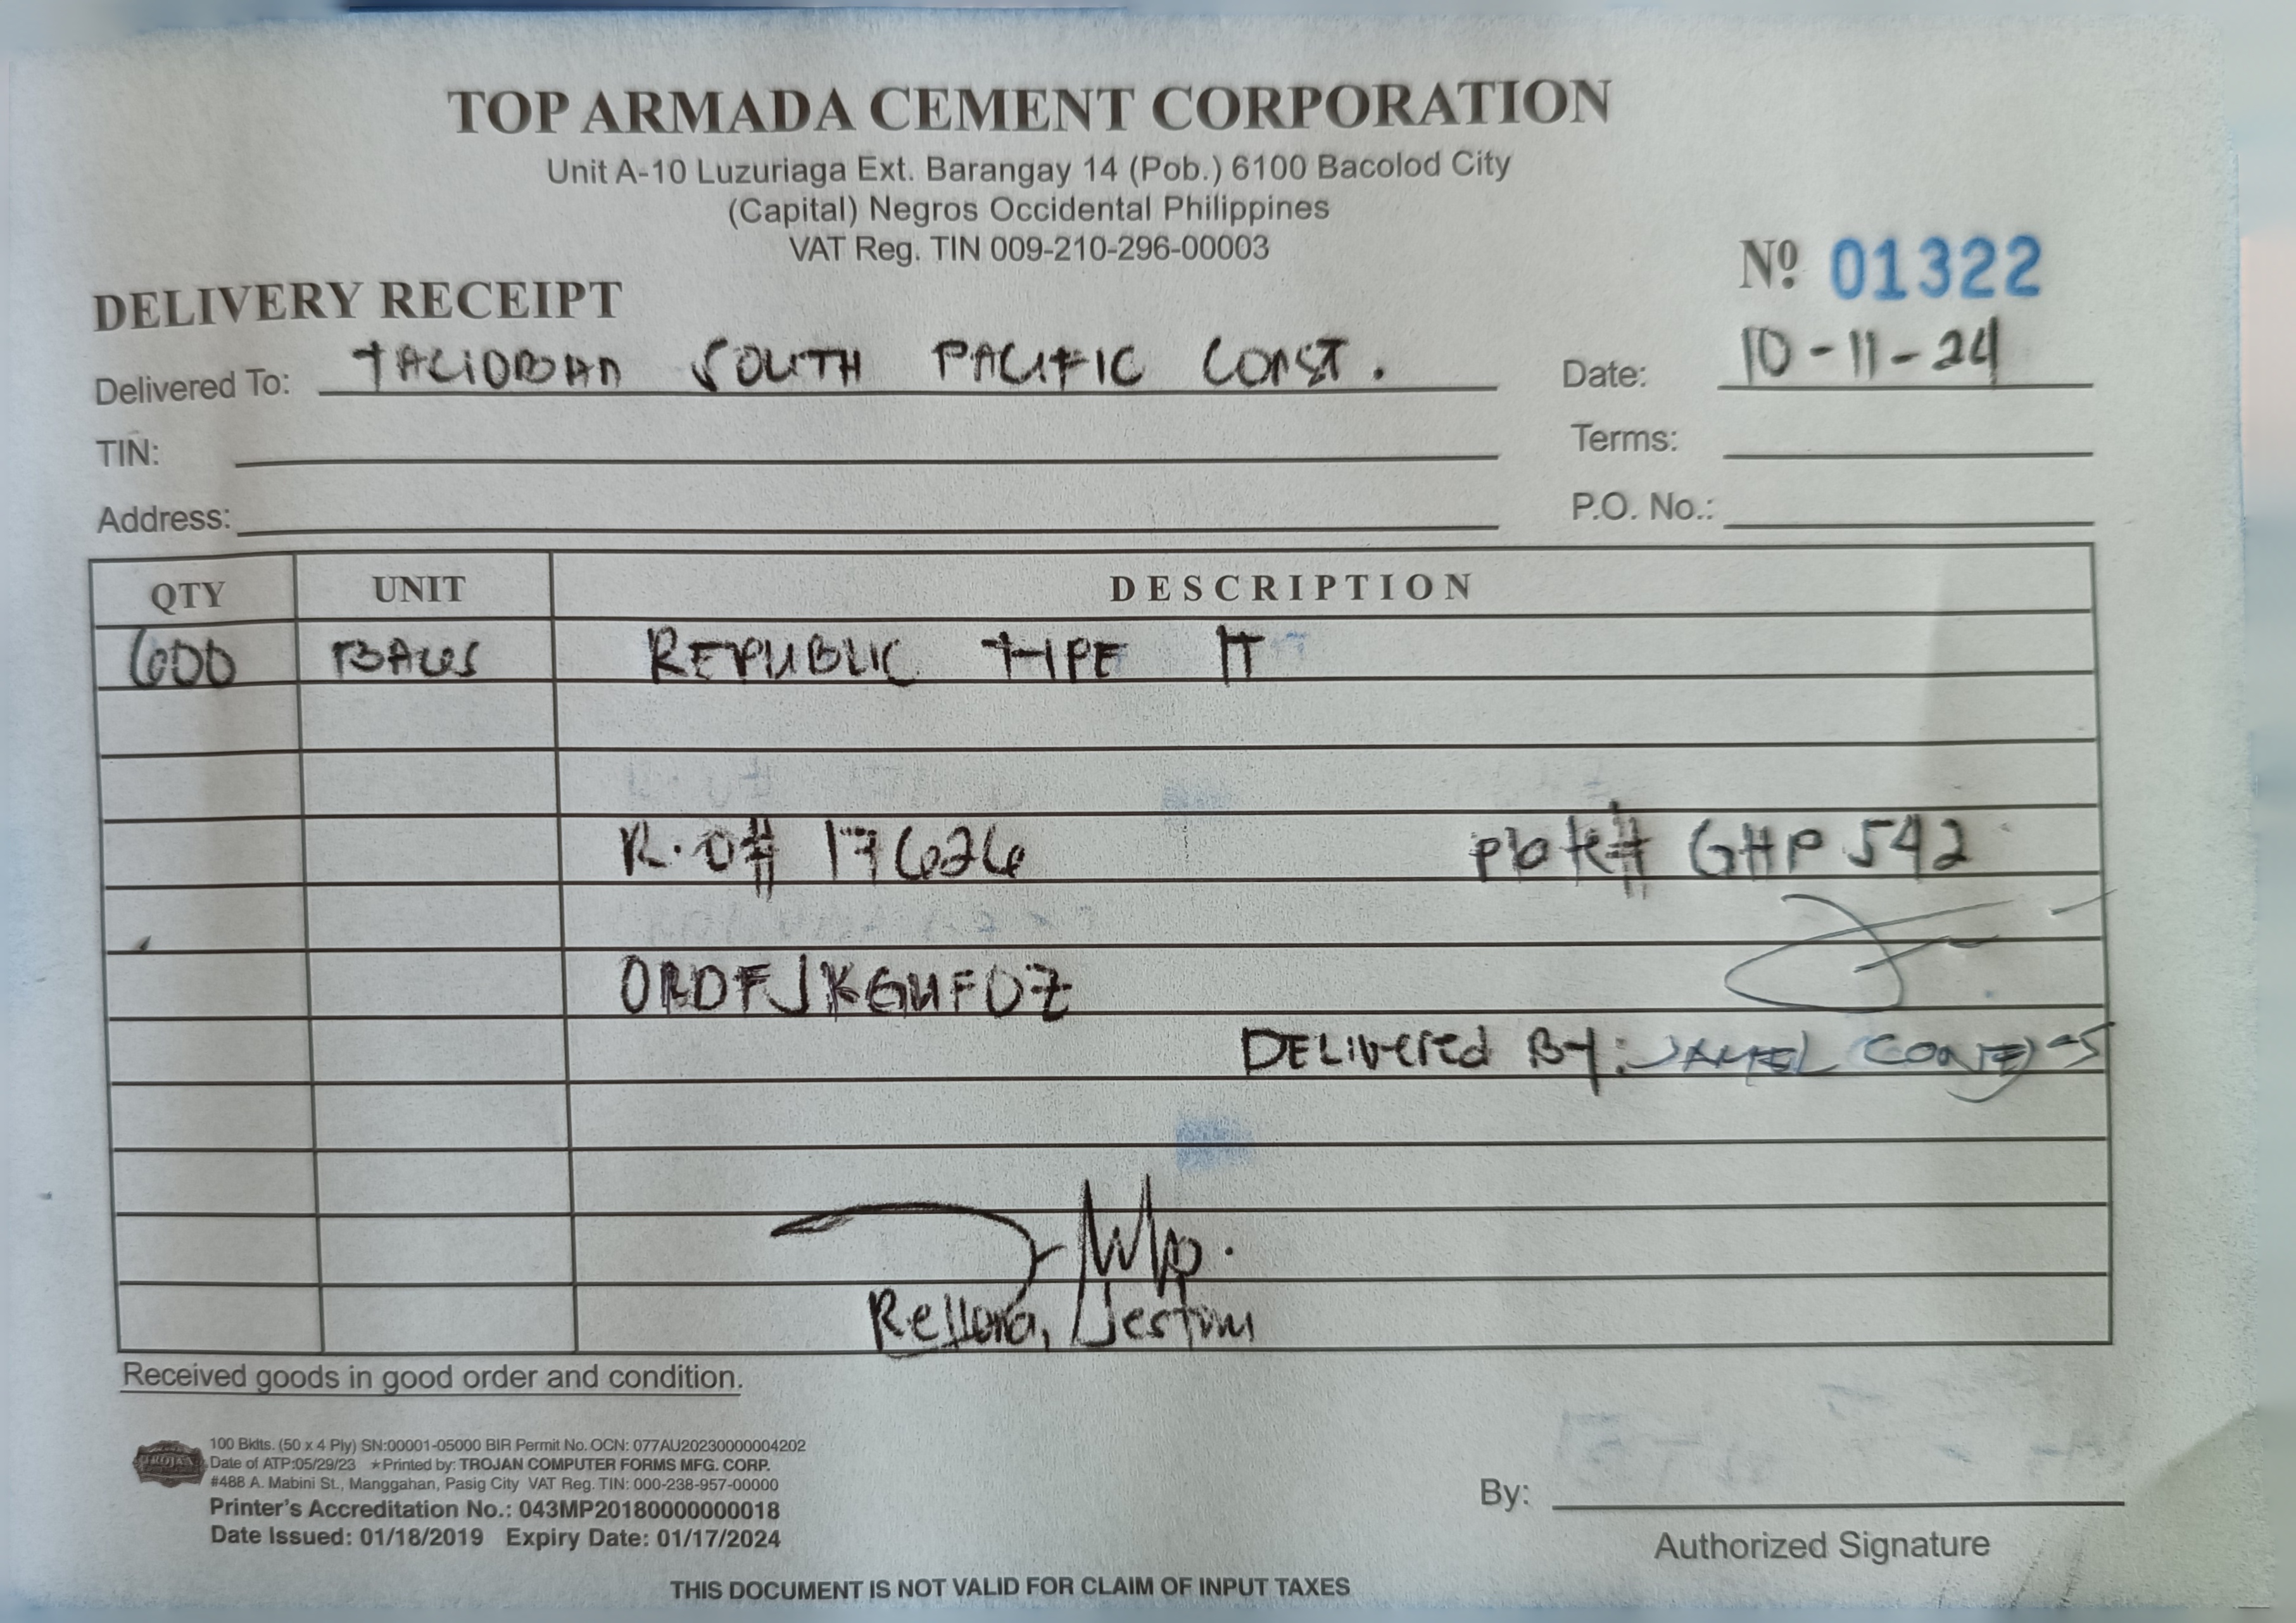 TOP ARMADA CEMENT CORPORATION
Unit A-10 Luzuriaga Ext. Barangay 14 (Pob.) 6100 Bacolod City
(Capital) Negros Occidental Philippines
VAT Reg. TIN 009-210-296-00003
Nº 01322
DELIVERY RECEIPT
Delivered To: TACLOBAN SOUTH PACIFIC CONST. Date: 10-11-24
TIN: Terms:
Address: P.O. No.:
QTY UNIT DESCRIPTION
600 BAGS REPUBLIC TYPE IT
R.O# 17626 plate# GHP 542
ORDFJKGHFDZ
DELIVERED BY: JAMEL
Rellora, Jestoni
Received goods in good order and condition.
TROJAN
100 Bklts. (50 x 4 Ply) SN:00001-05000 BIR Permit No. OCN: 077AU20230000004202
Date of ATP:05/29/23 ★Printed by: TROJAN COMPUTER FORMS MFG. CORP.
#488 A. Mabini St., Manggahan, Pasig City VAT Reg. TIN: 000-238-957-00000
Printer's Accreditation No.: 043MP20180000000018
Date Issued: 01/18/2019 Expiry Date: 01/17/2024
By:
Authorized Signature
THIS DOCUMENT IS NOT VALID FOR CLAIM OF INPUT TAXES